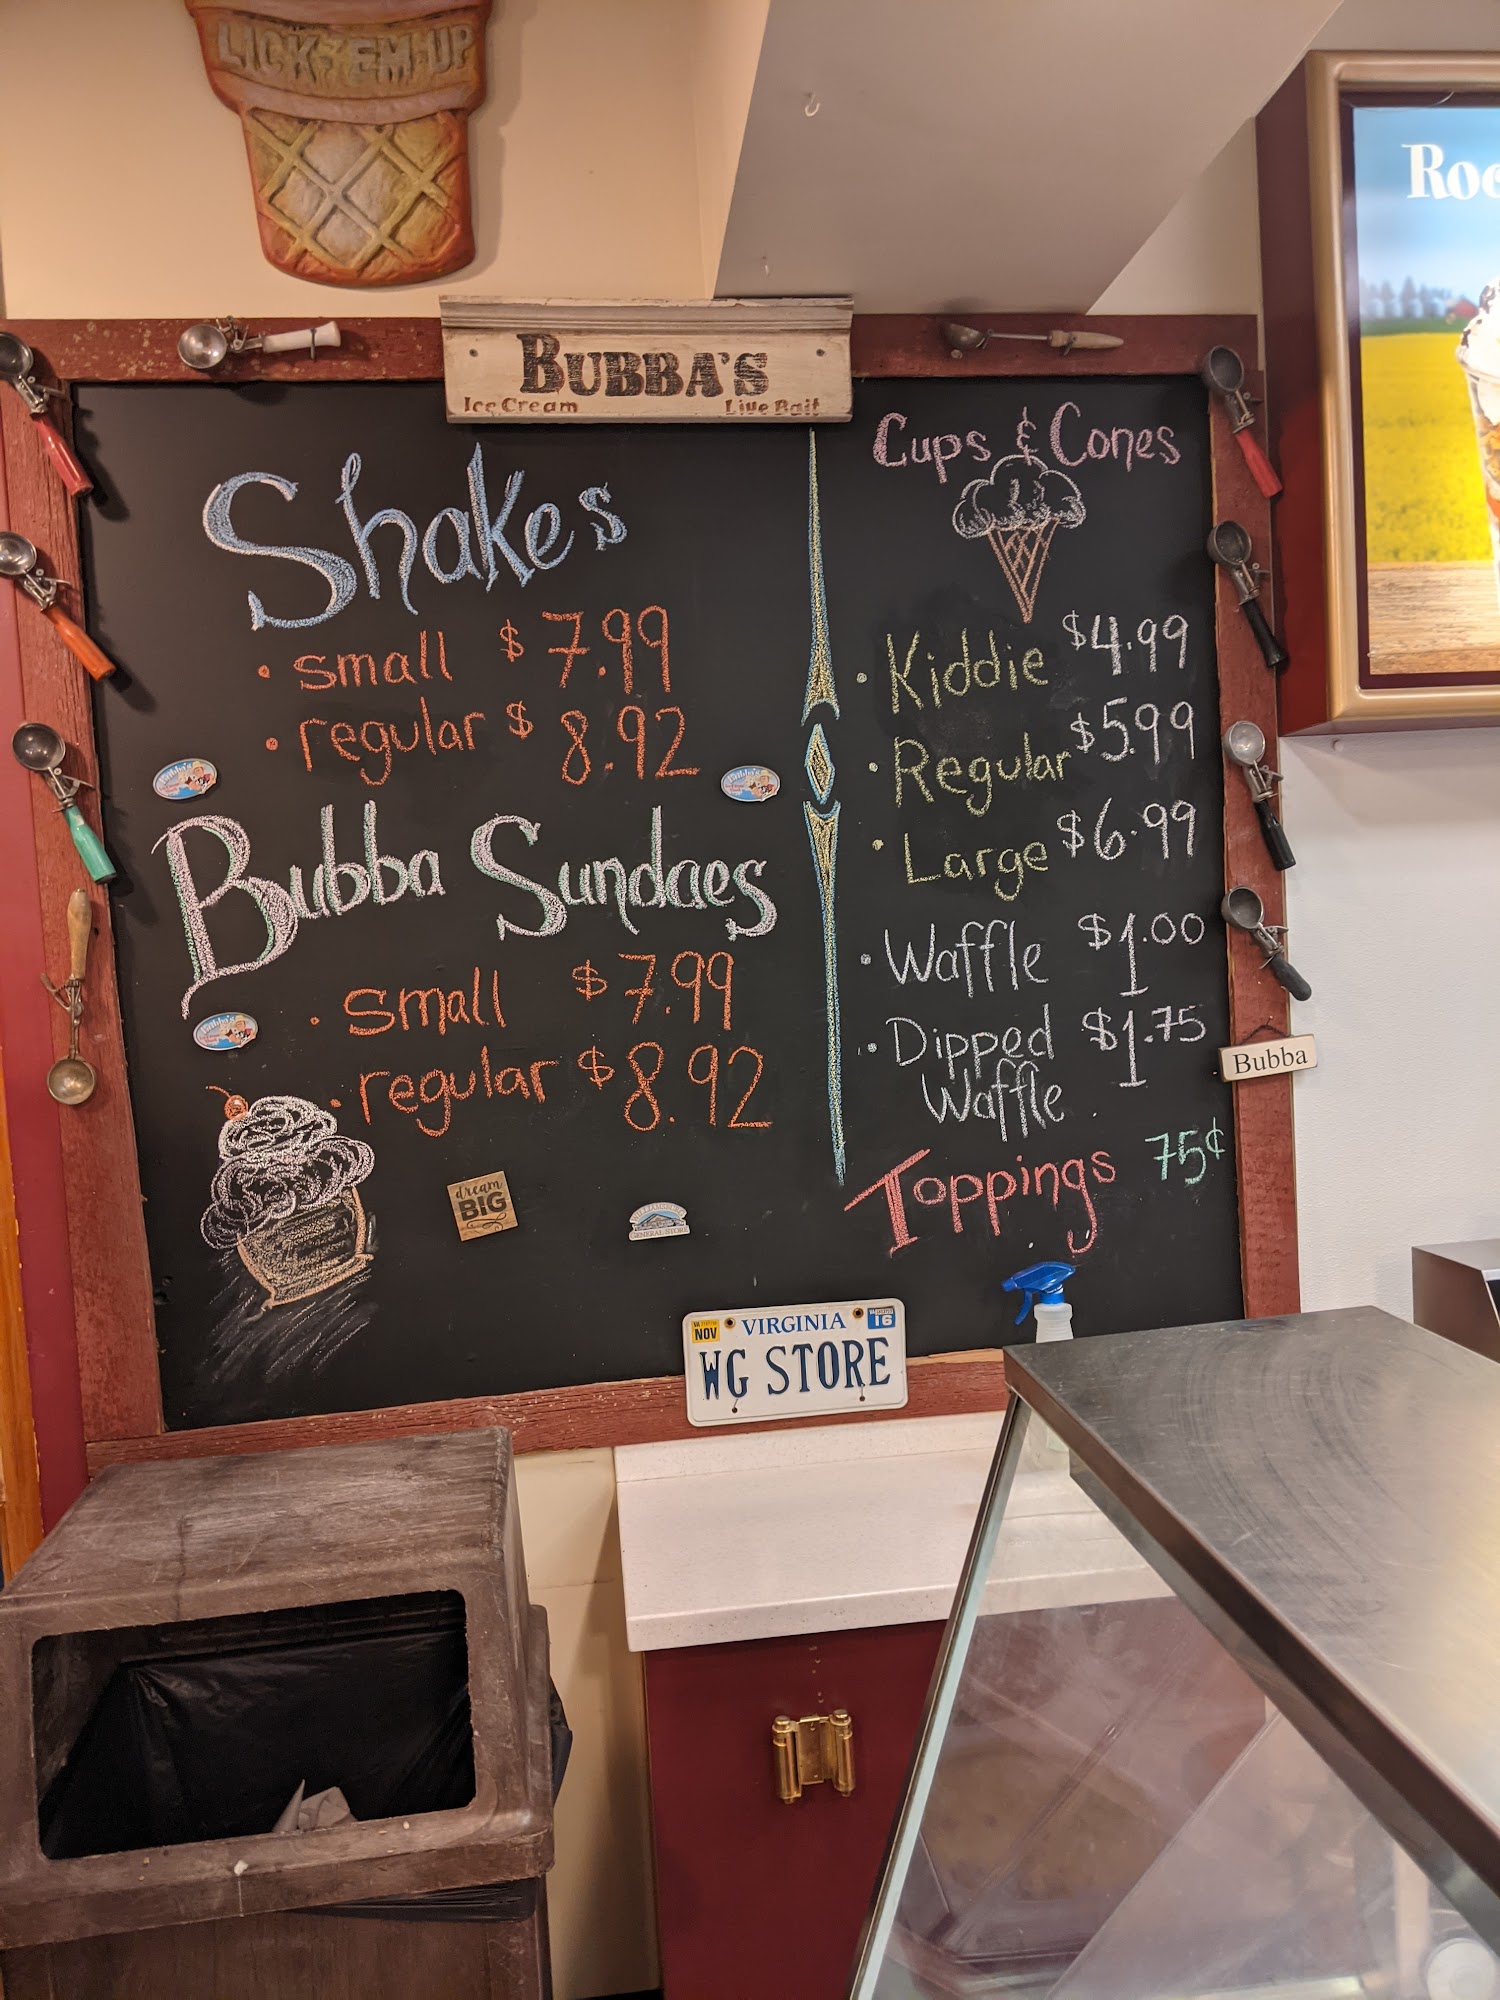 LICK-'EM-UP
Roc
BUBBA'S
Ice Cream Live Bait
Shakes
• small $7.99
• regular $8.92
Bubba Sundaes
• small $7.99
• regular $8.92
dream
BIG
GENERAL STORE
Cups & Cones
• Kiddie $4.99
• Regular $5.99
• Large $6.99
• Waffle $1.00
• Dipped Waffle $1.75
Toppings 75¢
Bubba
NOV VIRGINIA 16
WG STORE